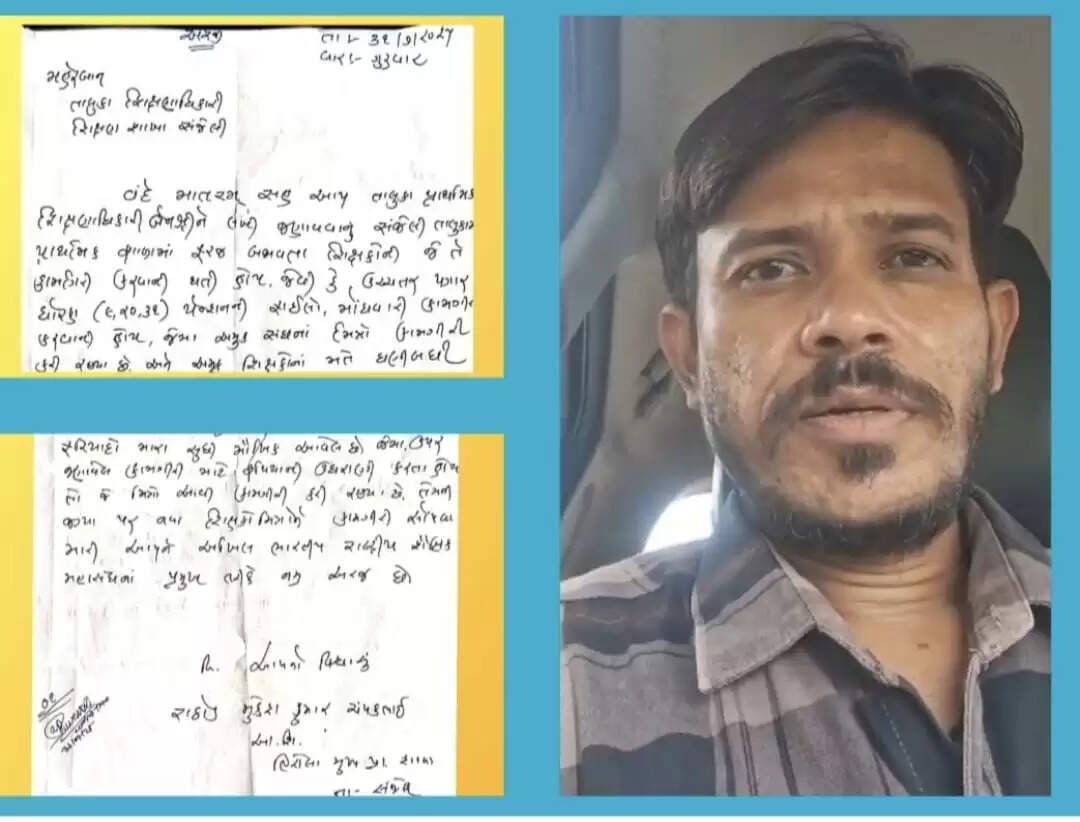 તા:- ૩૧/૭/૨૦૨૫
વાર:- ગુરૂવાર
મહેરબાન
તાલુકા શિક્ષણાધિકારી
શિક્ષણ શાખા સંજેલી
વંદે માતરમ્ સહ આપ તાલુકા પ્રાથમિક
શિક્ષણાધિકારી બેનશ્રીને લખી જણાવવાનું સંજેલી તાલુકામાં
પ્રાથમિક શાળામાં ફરજ બજાવતા શિક્ષકોની જે તે
કામગીરી કરવાની થતી હોય, જેવી કે ઉચ્ચતર પગાર
ધોરણ (૯,૨૦,૩૧) પેન્શનની ફાઈલો, મોંઘવારી કામગીરી
કરવાની હોય, જેમાં અમુક સંઘનાં કામગીરી
કરી રહ્યા છે. અને અમુક શિક્ષકોનાં મતે ઘણીબધી
ફરિયાદો મારા સુધી મૌખિક આવેલ છે જેમા, ઉપર
જણાવેલ કામગીરી માટે રૂપિયાની ઉઘરાણી કરતા હોય
તો જે મિત્રો આવી કામગીરી કરી રહ્યા છે. તેમની
જગ્યા પર નવા શિક્ષકો મિત્રોને કામગીરી સોંપવા
મારી આપને અખિલ ભારતીય રાષ્ટ્રીય શૈક્ષિક
મહાસંઘનાં પ્રમુખ તરીકે નમ્ર અરજ છે
લિ. આપનો વિશ્વાસું
રાઠોડ મુકેશ કુમાર ચંપકલાઈ
આ.શિ.
હિરોલા મુખ્ય પ્રા શાળા
તા- સંજેલી